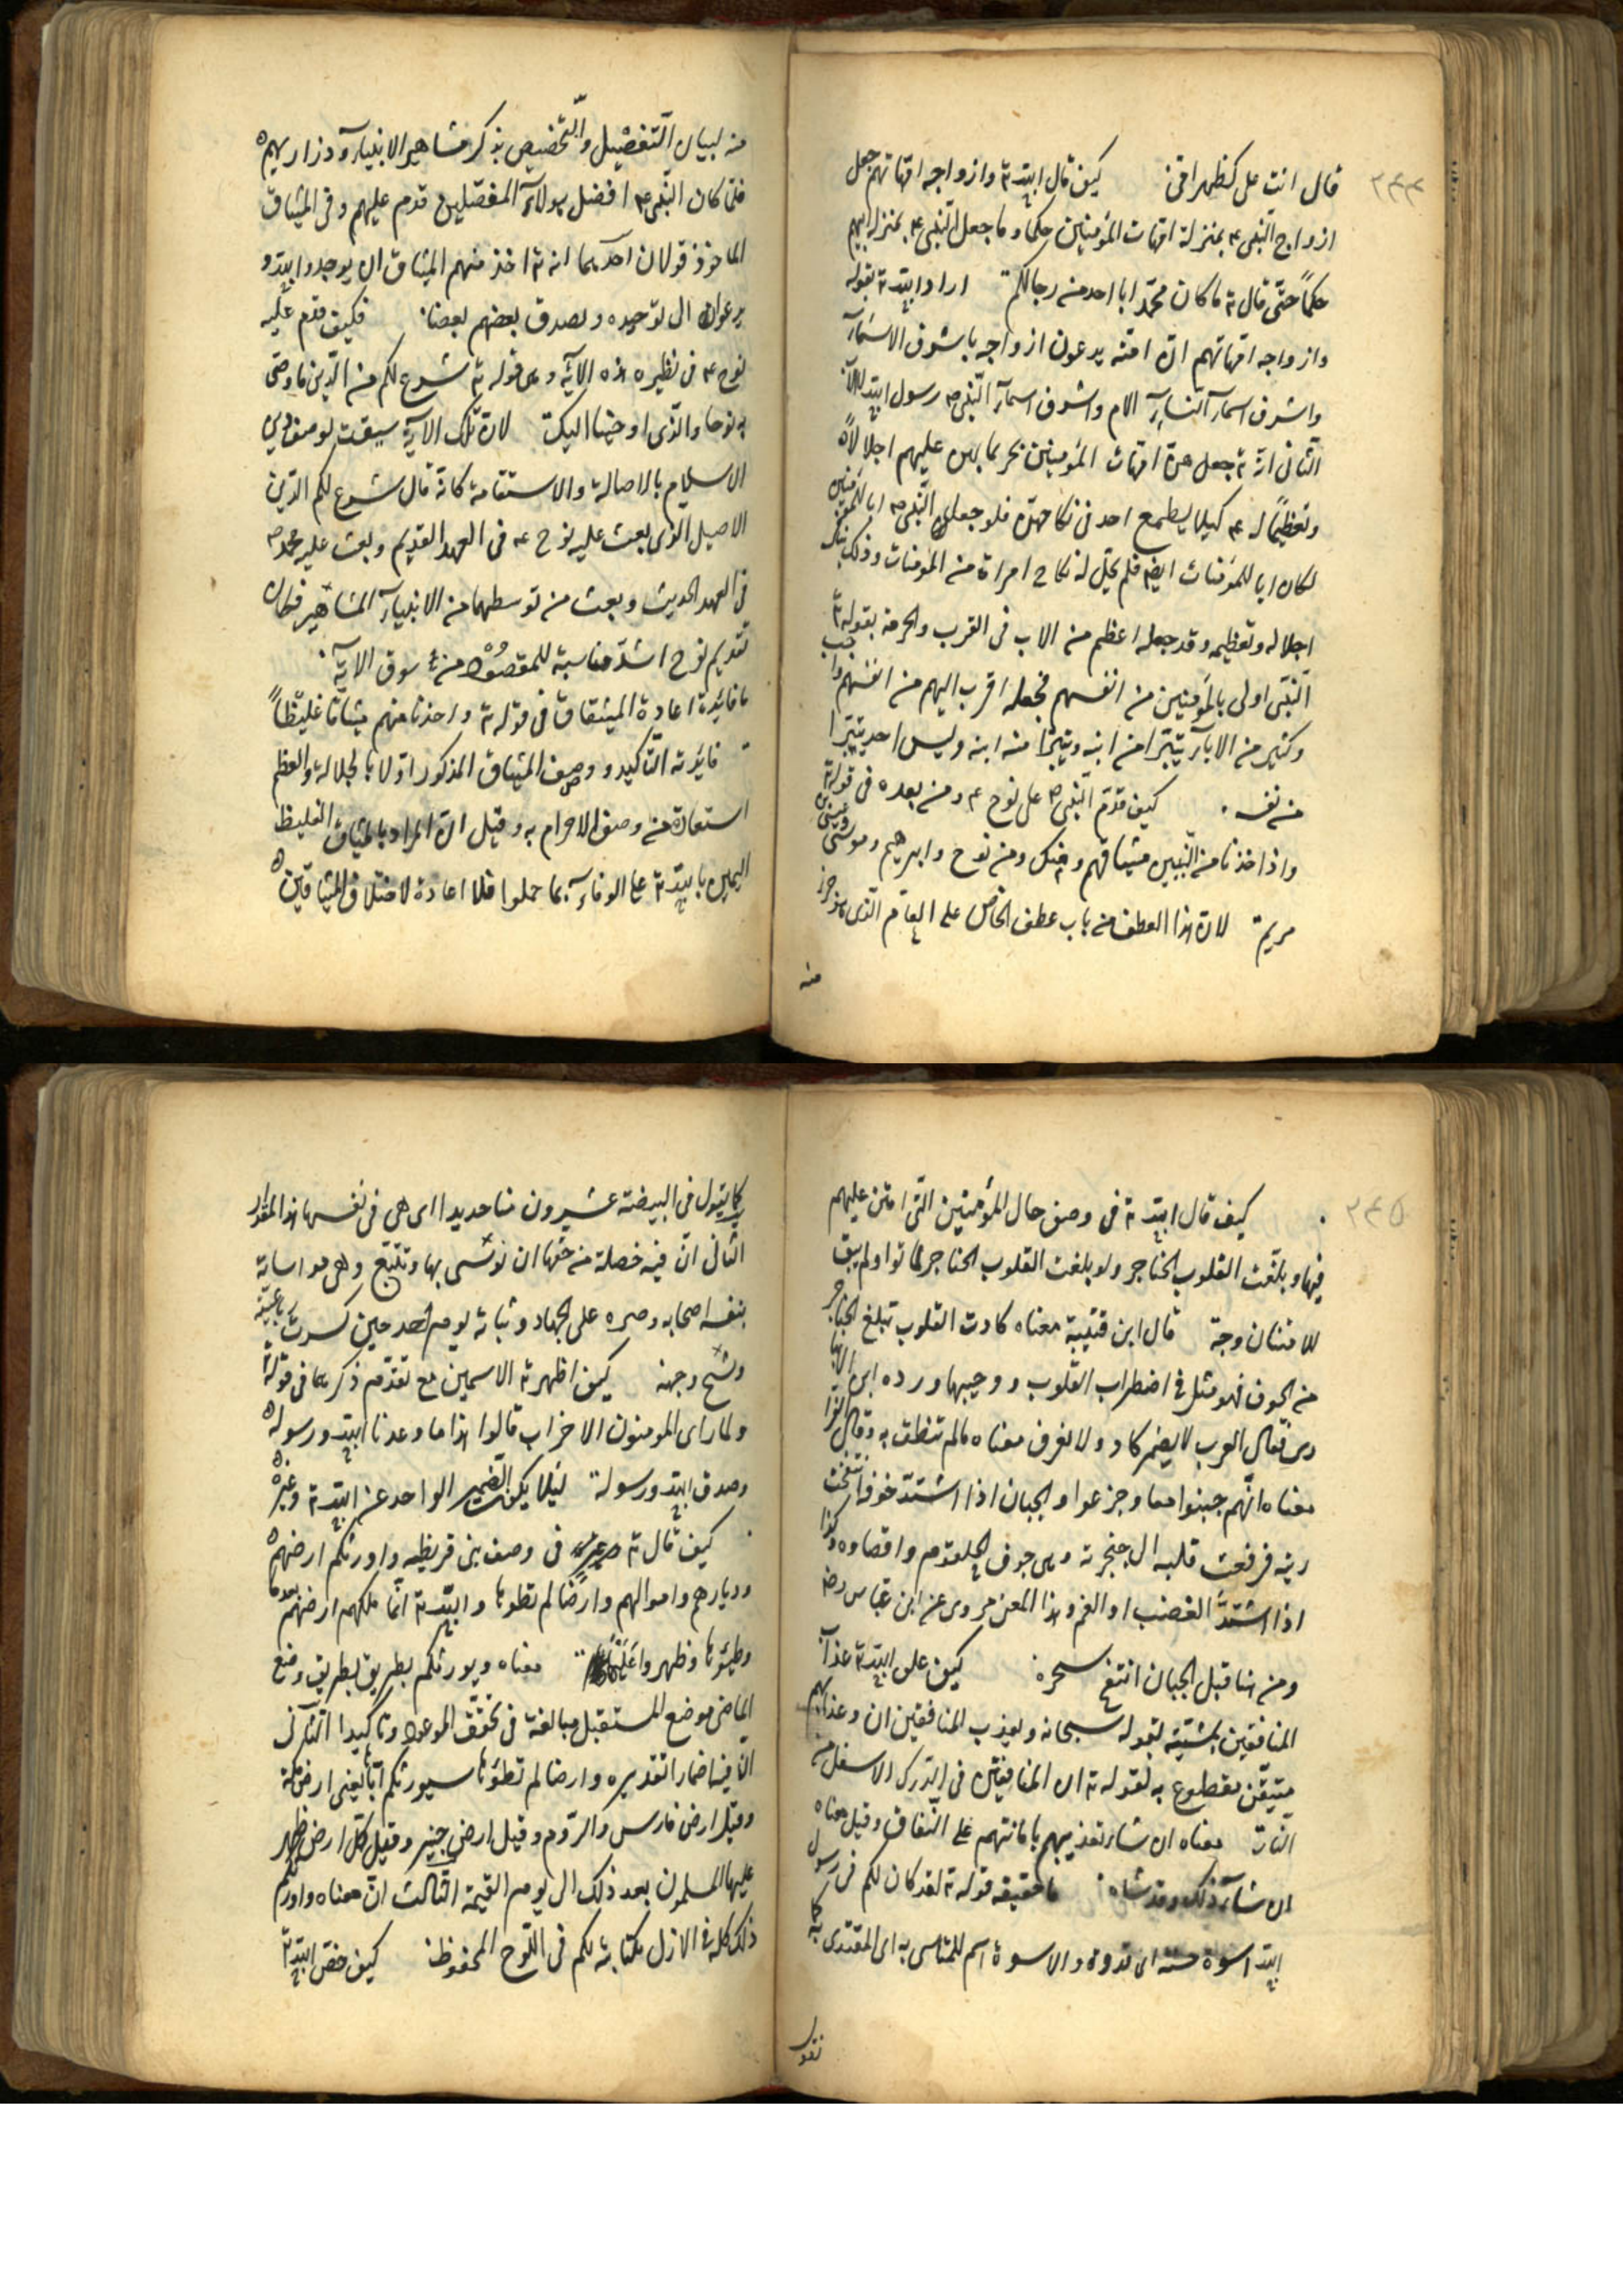 ٢٤٤
قال انت على كظهر امّى كيف قال الله تع وازواجه امّهاتهم جعل
ازواج النّبى ع م بمنزلة امّهات المؤمنين حكما وما جعل النّبى ع م بمنزلة ابيهم
حكماً حتّى قال تع ما كان محمّد ابا احد من رجالكم اراد الله تع بقوله
وازواجه امّهاتهم انّ امّته يدعون ازواجه باشرف الاسمآء
واشرف اسمآء النّسآء الام واشرف اسمآء النّبى ص رسول الله
الثّانى انّه تع جعلهنّ امّهات المؤمنين تحريما لهن عليهم اجلالاً
وتعظيماً له ع م كيلا يطمع احد فى نكاحهنّ فلو جعل النّبى ص ابا للمؤمنين
لكان ابا للمؤمنات ايضا فلم يحلّ له نكاح امراة من المؤمنات وذلك ينا
اجلاله وتعظيمه وقد جعله اعظم من الاب فى القرب والحرمة بقوله تع
النّبى اولى بالمؤمنين من انفسهم فجعله اقرب اليهم من انفسهم
وكثير من الابآء يتبرّا من ابنه ويتبرّا منه ابنه وليس احد يتبرّا
من نفسه كيف قدّم النّبى ص على نوح ع م ومن بعده فى قوله تع
واذ اخذنا من النّبيين ميثاقهم ومنك ومن نوح وابرهيم وموسى وعيسى
مريم لانّ هذا العطف من باب عطف الخاصّ على العامّ الّذى هو جزء
منه
منه لبيان التّفضيل والتّخصيص بذكر مشاهير الانبيآء وذراريهم
فلمّا كان النّبى ع م افضل هولآء المفضّلين قدم عليهم وفى الميثاق
الماخوذ قولان احدهما انه تع اخذ منهم الميثاق ان يوحدوا الله و
يدعون الى توحيده ويصدق بعضهم بعضا فكيف قدم عليه
نوح ع م فى نظيره هذه الآية وهى قوله تع شرع لكم من الدّين ما وصّى
به نوحا والّذى اوحينا اليك لانّ تلك الآية سيقت لوصف دين
الاسلام بالاصالة والاستقامة كانه قال شرع لكم الدّين
الاصيل الّذى بعث عليه نوح ع م فى العهد القديم وبعث عليه محمد ص
فى العهد الحديث وبعث من توسطهما من الانبيآء المشاهير فكان
تقديم نوح اشدّ مناسبة للمقصود من سوق الآية
ما فائدة اعادة الميثاق فى قوله تع واخذنا منهم ميثاقا غليظاً
فائدته التّاكيد ووصف الميثاق المذكور اوّلا بالجلالة والعظم
استعارة من وصف الاجرام به وقيل انّ المراد بالميثاق الغليظ
اليمين بالله تع على الوفآء بما حملوا فلا اعادة لاختلاف الميثاقين
٢٤٥
كيف قال الله تع فى وصف حال المؤمنين الّتى امتن عليهم
فيها وبلغت القلوب الحناجر ولو بلغت القلوب الحناجر لماتوا ولم يبق
للامتنان وجه قال ابن قتيبة معناه كادت القلوب تبلغ الحناجر
من الخوف فهو مثل فى اضطراب القلوب ووجيبها ورده ابن الانبا
رى فقال العرب لا يضمر كاد ولا نعرف معناه مالم تنطق به وقال الفرا
معناه انّهم جبنوا معا وجزعوا والجبان اذا اشتدّ خوفه انتفخت
ريته فرفعت قلبه الى حنجرته وهى جوف الحلقوم واقصاه وكذا
اذا اشتدّ الغضب او الغم وهذا المعنى مروى عن ابن عباس رض
ومن هنا قيل للجبان انتفخ سحره كيف علق الله تع عذاب
المنافقين بمشيّته بقوله سبحانه ويعذب المنافقين ان وعذابهم
متيقّن مقطوع به لقوله تع ان المنافقين فى الدّرك الاسفل من
النّار معناه ان شآء تعذيبهم باماتتهم على النّفاق وقيل معناه
ان شآء ذلك وقد شاء ما حقيقة قوله تع لقد كان لكم فى رسول
الله اسوة حسنة اى قدوة والاسوة اسم للمتاسى به اى المقتدى به كما
تقول
كما يقول فى البيضة عشرون منا حديدا اى هى فى نفسها هذا المقدار
الثانى انّ فيه خصلة من حقها ان نوتسى بها وتتّبع وهى مواساته
بنفسه اصحابه وصبره على الجهاد وثباته يوم احد حين كسرت رباعيته
وشجّ وجهه كيف اظهر تع الاسمين مع تقدّم ذكرهما فى قوله تع
ولما راى المومنون الاحزاب قالوا هذا ما وعدنا الله ورسوله
وصدق الله ورسوله لئلا يكون الضمير الواحد عن الله تع وغيره
كيف قال تع فى وصف بنى قريظه واورثكم ارضهم
وديارهم واموالهم وارضًا لم تطوها والله تع انّما ملكهم ارضهم بعد ما
وطئوها وظهروا عليها معناه ويورثكم بطريق بطريق وضع
الماضى موضع المستقبل مبالغة فى تحقّق الموعود وتاكيدا الثانى
انّ فيه اضمارا تقديره وارضا لم تطوها سيورثكم ايّاها يعنى ارض مكة
وقيل ارض فارس والرّوم وقيل ارض خيبر وقيل كلّ ارض ظهر
عليها المسلمون بعد ذلك الى يوم القيمة الثّالث انّ معناه واورثكم
ذلك كلّه فى الازل بكتابته لكم فى اللّوح المحفوظ كيف خصّ الله تع